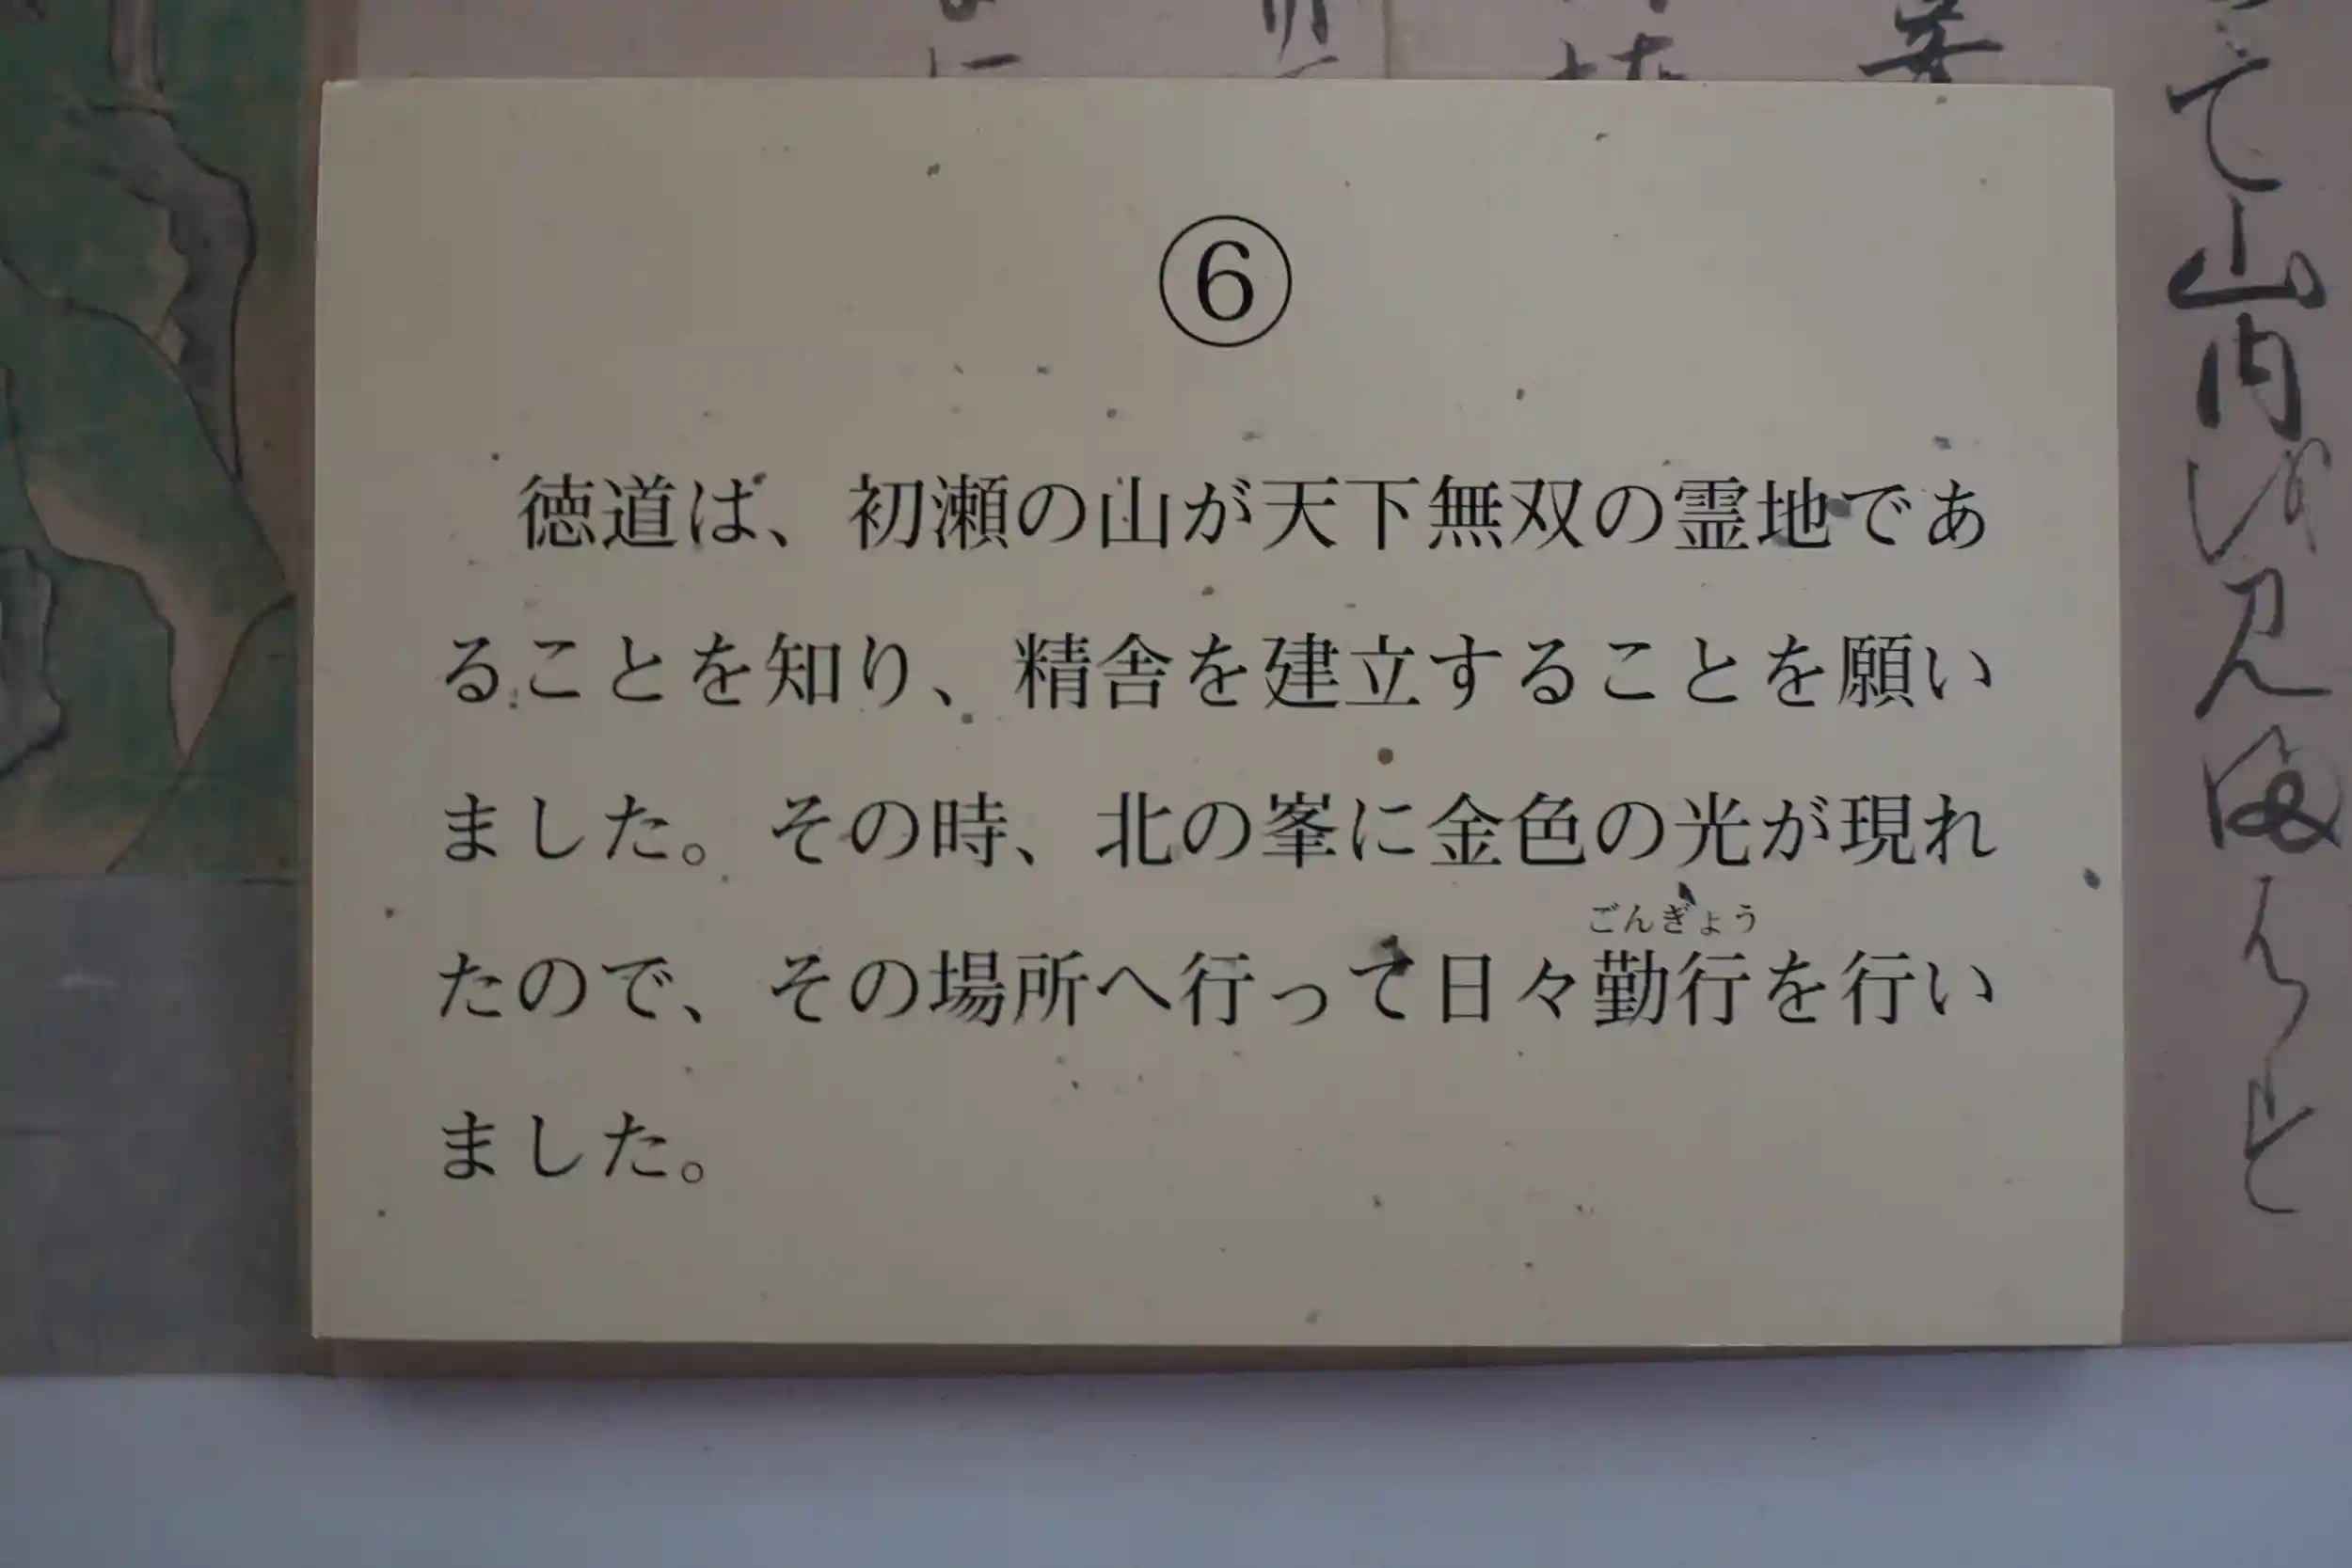 ⑥
徳道は、初瀬の山が天下無双の霊地であ
ることを知り、精舎を建立することを願い
ました。その時、北の峯に金色の光が現れ
ごんぎょう
たので、その場所へ行って日々勤行を行い
ました。
て山内を見